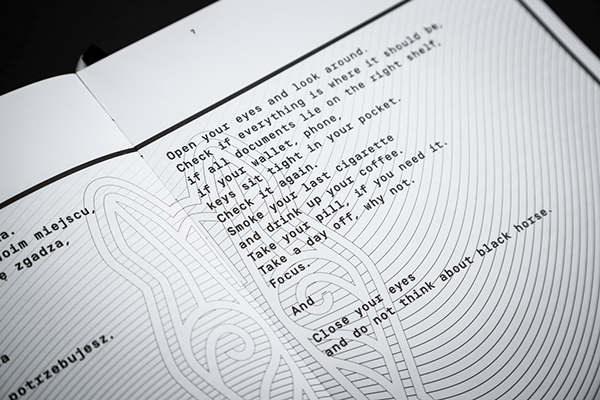 7
a.
voim miejscu,
ę zgadza,
a
potrzebujesz.
Open your eyes and look around.
Check if everything is where it should be,
if all documents lie on the right shelf,
if your wallet, phone,
keys sit tight in your pocket.
Check it again.
Smoke your last cigarette
and drink up your coffee.
Take your pill, if you need it.
Take a day off, why not.
Focus.
And
Close your eyes
and do not think about black horse.